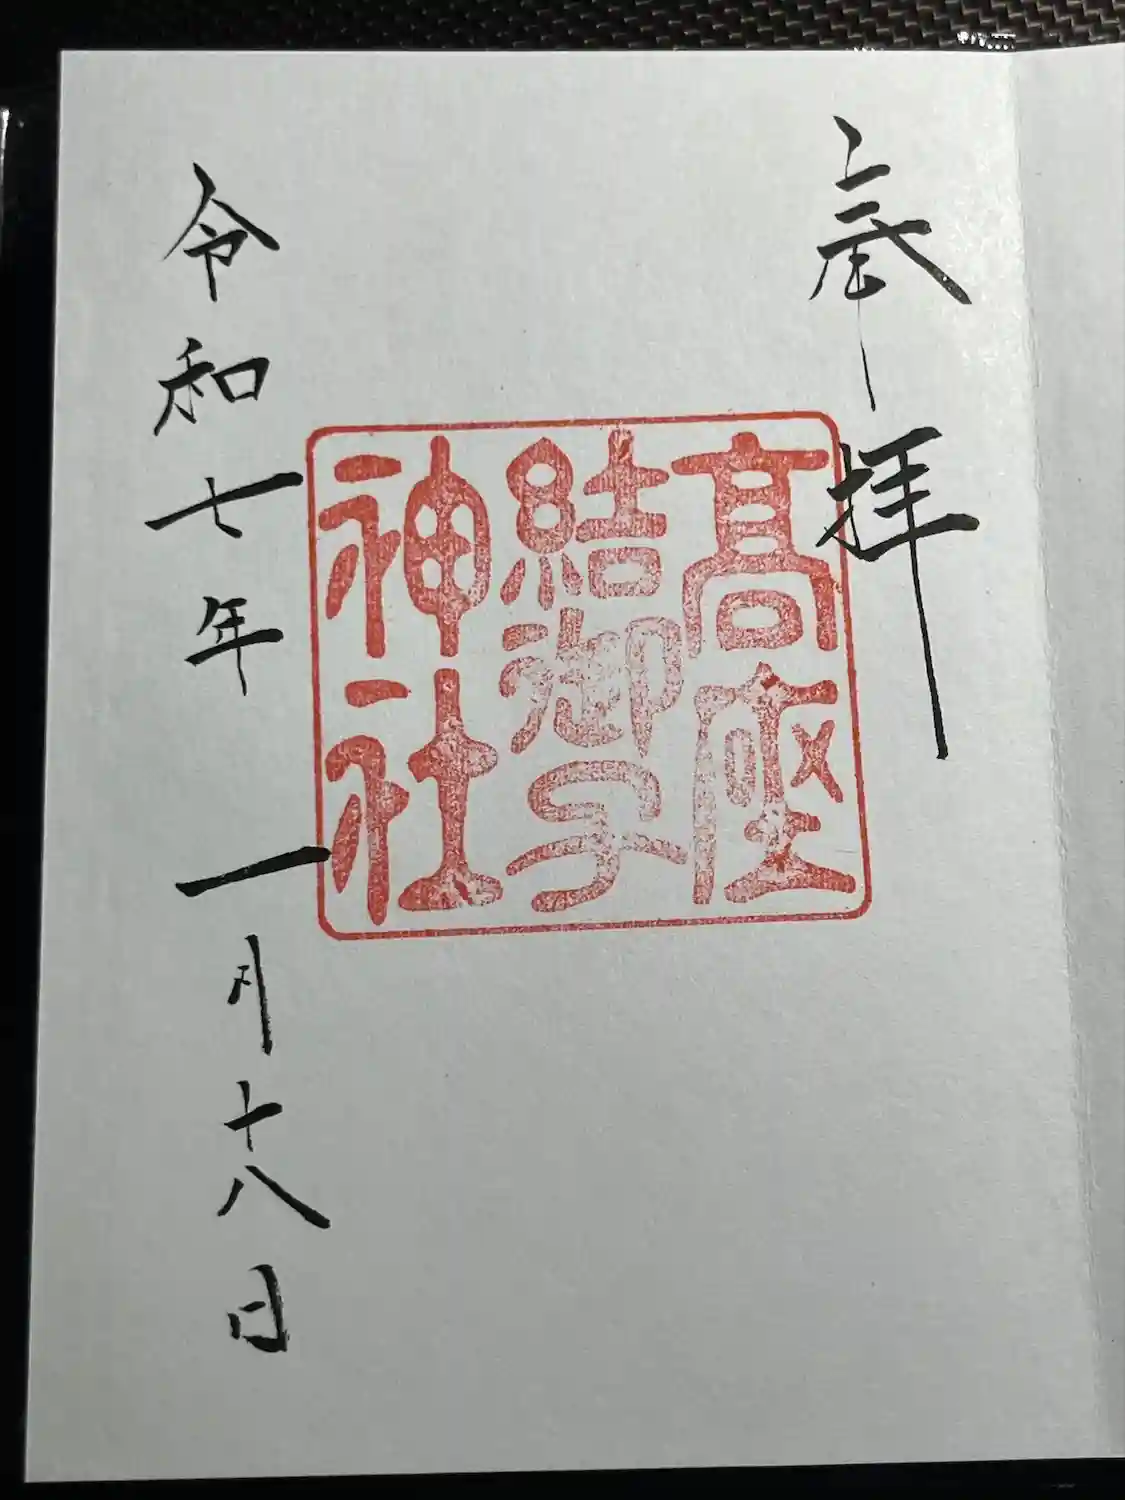 奉拝
髙座
結御子
神社
令和七年一月十八日